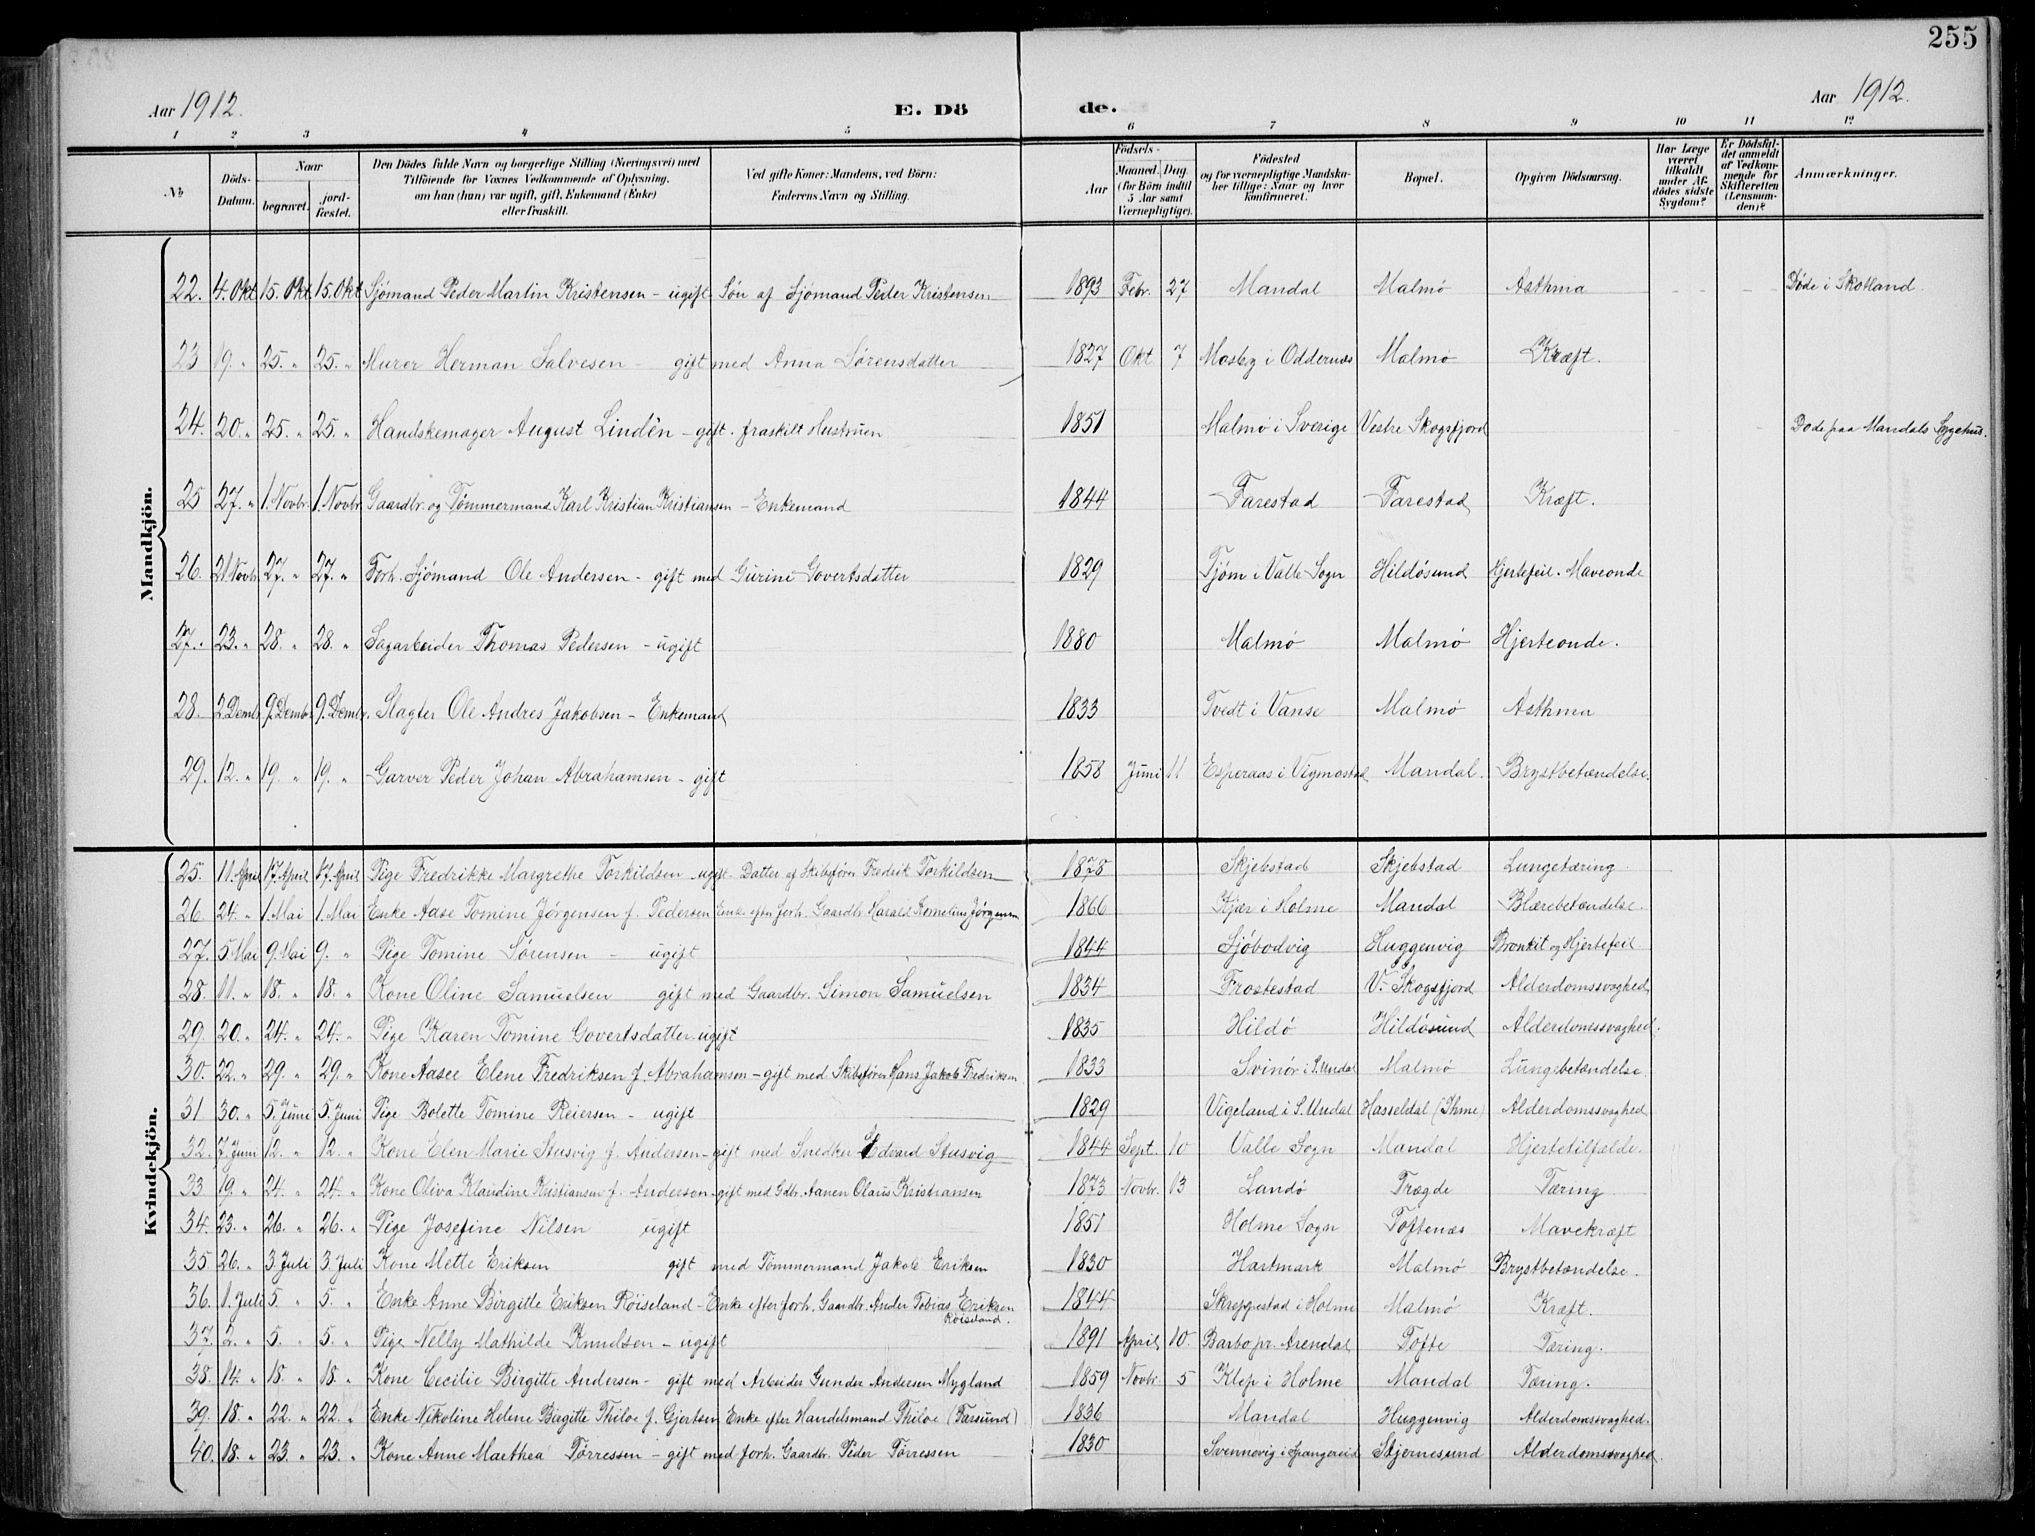 255
Aar 1912.
E. Dö
de.
Aar 1912.
1 2 3 4 5 6 7 8 9 10 11 12
No.
Döds-Datum.
Naar
begravet.
jord-fæstet.
Den Dödes fulde Navn og borgerlige Stilling (Næringsvei) med
Tilföiende for Voxnes Vedkommende af Oplysning,
om han (hun) var ugift, gift, Enkemand (Enke)
eller fraskilt.
Ved gifte Koner: Mandens, ved Börn:
Faderens Navn og Stilling.
Födsels-
Aar
Maaned. Dag.
(for Börn indtil
5 Aar samt
Værnepligtige).
Födested
og for værnepligtige Mandska-
ber tillige: Naar og hvor
konfirmeret.
Bopæl.
Opgiven Dödsaarsag.
Har Læge
været
tilkaldt
under Af-
dödes sidste
Sygdom?
Er Dödsfal-
det anmeldt
af Vedkom-
mende for
Skifteretten
(Lensman-
den)?
Anmærkninger.
Mandkjön.
22. 4. Okt. 15. Okt. 15. Okt. Sjömand Peder Martin Kristensen - ugift Sön af Sjömand Peder Kristensen 1893 Febr. 27 Mandal Malmö Asthma Døde i Skotland.
23 19. " 25. " 25. " Murer Herman Salvesen - gift med Anna Sørensdatter 1827 Okt 7 Mosby i Oddernæs Malmö Kræft.
24. 20. " 25. " 25. " Handskemager August Lindén - gift. fraskilt Hustruen 1851 Malmö i Sverige Vestre Skogsfjord Døde paa Mandals Sygehus.
25 27. " 1. Novbr. 1. Novbr. Gaardbr. og Tømmermand Karl Kristian Kristiansen - Enkemand 1844 Farestad Farestad Kræft.
26. 21. Novbr. 27. " 27. " Forh. Sjömand Ole Andersen - gift med Gurine Govertsdatter 1829 Tjöm i Valle Sogn Hildösund Hjertefeil. Maveonde
27. 23. " 28. " 28. " Sagarbeider Thomas Pedersen - ugift 1880 Malmö Malmö Hjerteonde.
28. 2. Dembr. 9. Dembr. 9. Dembr. Slagter Ole Andres Jakobsen - Enkemand 1833 Tvedt i Vanse Malmö Asthma
29. 12. " 19. " 19. " Garver Peder Johan Abrahamsen - gift 1858 Juni 11 Esperaas i Vigmostad Mandal. Brystbetændelse.
Kvindekjön.
25. 11. April 17. April 17. April Pige Fredrikke Margrethe Torkildsen ugift - Datter af Skibsfører Fredrik Torkildsen 1878 Skjebstad Skjebstad Lungetæring.
26. 24. " 1. Mai 1. Mai Enke Aase Tomine Jörgensen f. Pedersen Enke efter forh. Gaardbr. Harald Kornelius Jörgensen 1866 Kjær i Holme Mandal Blærebetændelse.
27. 5. Mai 9. Mai 9. " Pige Tomine Sørensen - ugift 1844 Sjöbodvig Huggenvig Bronkit og Hjertefeil
28. 11. " 18. " 18. " Kone Oline Samuelsen gift med Gaardbr. Simon Samuelsen 1834 Frostestad V. Skogsfjord Alderdomssvaghed
29. 20. " 24. " 24. " Pige Karen Tomine Govertsdatter ugift 1835 Hildö Hildösund Alderdomssvaghed.
30. 22. " 29. " 29. " Kone Aasee Elene Fredriksen f. Abrahamsen - gift med Skibsfører Hans Jakob Fredriksen 1833 Svinör i S. Undal Malmö Lungebetændelse.
31 30. " 5. Juni 5. Juni Pige Bolette Tomine Reiersen - ugift 1829 Vigeland i S. Undal Hasseldal (Ihme) Alderdomssvaghed
32. 7. Juni 12. " 12. " Kone Elen Marie Stusvig f. Andersen - gift med Snedker Edvard Stusvig 1844 Sept. 10 Valle Sogn Mandal Hjertetilfælde.
33 19. " 24. " 24. " Kone Oliva Klaudine Kristiansen f. Anderson - gift med Gdbr. Aanen Olaus Kristiansen 1873 Novbr. 13 Landö Trægde Tæring.
34. 23. " 26. " 26. " Pige Josefine Nilsen ugift 1851 Holme Sogn Toftenæs Mavekræft
35. 26. " 3. Juli 3. Juli Kone Mette Eriksen gift med Tømmermand Jakob Eriksen 1830 Hartmark Malmö Brystbetændelse.
36. 1. Juli 5. " 5. " Enke Anne Birgitte Eriksen Röiseland - Enke efter forh. Gaardbr. Ander Tobias Eriksen Röiseland. 1844 Skreppestad i Holme Malmö Kræft.
37. 2. " 5. " 5. " Pige Nelly Mathilde Knudsen - ugift 1891 April 10. Barbo pr. Arendal Tofte Tæring.
38. 14. " 18. " 18. " Kone Cecilie Birgitte Andersen - gift med Arbeider Gunder Andersen Mygland 1859 Novbr. 5 Klep i Holme Mandal Tæring.
39. 18. " 22. " 22. " Enke Nikoline Helene Birgitte Thiloe f. Gjertsen Enke efter Handelsmand Thiloe (Farsund) 1836 Mandal Huggenvig Alderdomssvaghed.
40. 18. " 23. " 23. " Kone Anne Maethea Tørressen - gift med forh. Gaardbr. Peder Tørressen 1830 Svennevig i Spangereid Stjernesund Alderdomssvaghed